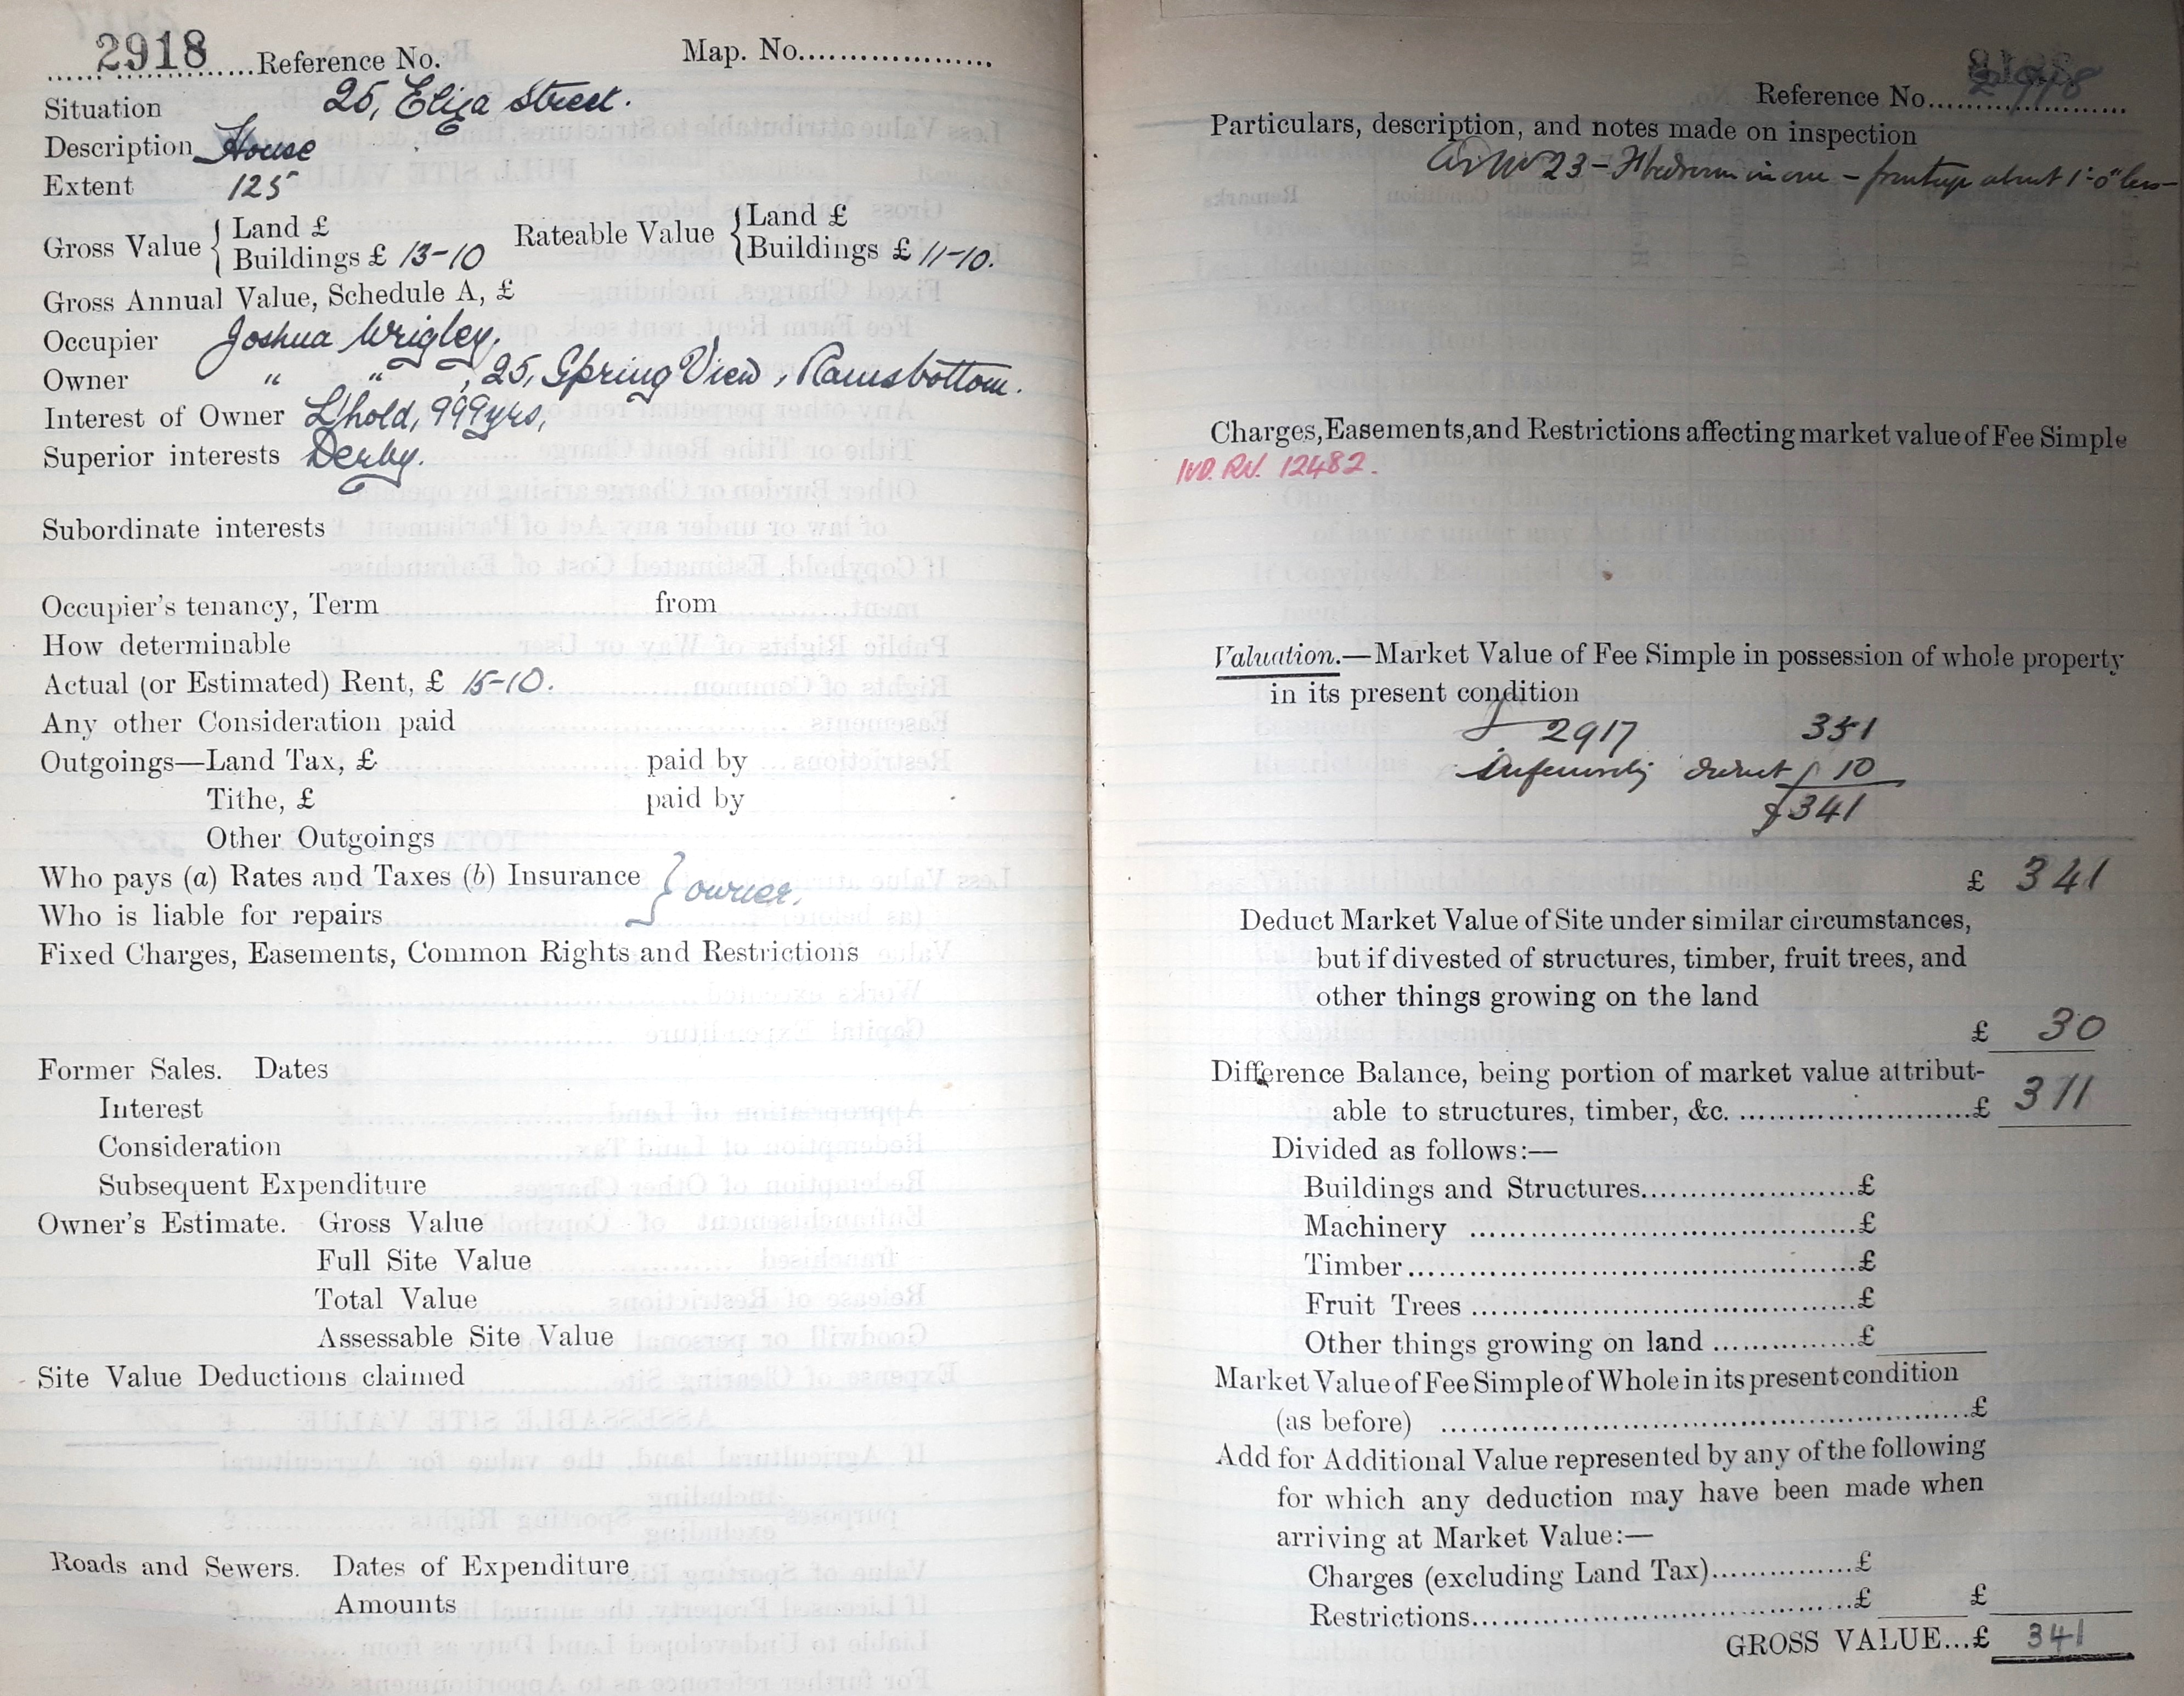 2918 Reference No. Map. No.
Situation 25, Eliza Street.
Description House
Extent 125
Gross Value { Land £ Rateable Value { Land £
Buildings £ 13-10 Buildings £ 11-10.
Gross Annual Value, Schedule A, £
Occupier Joshua Wrigley,
Owner " " , 25, Spring View, Ramsbottom.
Interest of Owner L'hold, 999 yrs,
Superior interests Derby.
Subordinate interests
Occupier's tenancy, Term from
How determinable
Actual (or Estimated) Rent, £ 15-10.
Any other Consideration paid
Outgoings—Land Tax, £ paid by
Tithe, £ paid by
Other Outgoings
Who pays (a) Rates and Taxes (b) Insurance } owner.
Who is liable for repairs
Fixed Charges, Easements, Common Rights and Restrictions
Former Sales. Dates
Interest
Consideration
Subsequent Expenditure
Owner's Estimate. Gross Value
Full Site Value
Total Value
Assessable Site Value
Site Value Deductions claimed
Roads and Sewers. Dates of Expenditure
Amounts
Reference No. 2918
Particulars, description, and notes made on inspection
As No 23 - in one - frontage about 1'-0" less -
Charges, Easements, and Restrictions affecting market value of Fee Simple
IVD. RN. 12482.
Valuation.—Market Value of Fee Simple in possession of whole property
in its present condition
2917 351
deduct 10
£341
£ 341
Deduct Market Value of Site under similar circumstances,
but if divested of structures, timber, fruit trees, and
other things growing on the land
£ 30
Difference Balance, being portion of market value attribut-
able to structures, timber, &c. £ 311
Divided as follows:—
Buildings and Structures £
Machinery £
Timber £
Fruit Trees £
Other things growing on land £
Market Value of Fee Simple of Whole in its present condition
(as before) £
Add for Additional Value represented by any of the following
for which any deduction may have been made when
arriving at Market Value:—
Charges (excluding Land Tax) £
Restrictions £ £
GROSS VALUE...£ 341